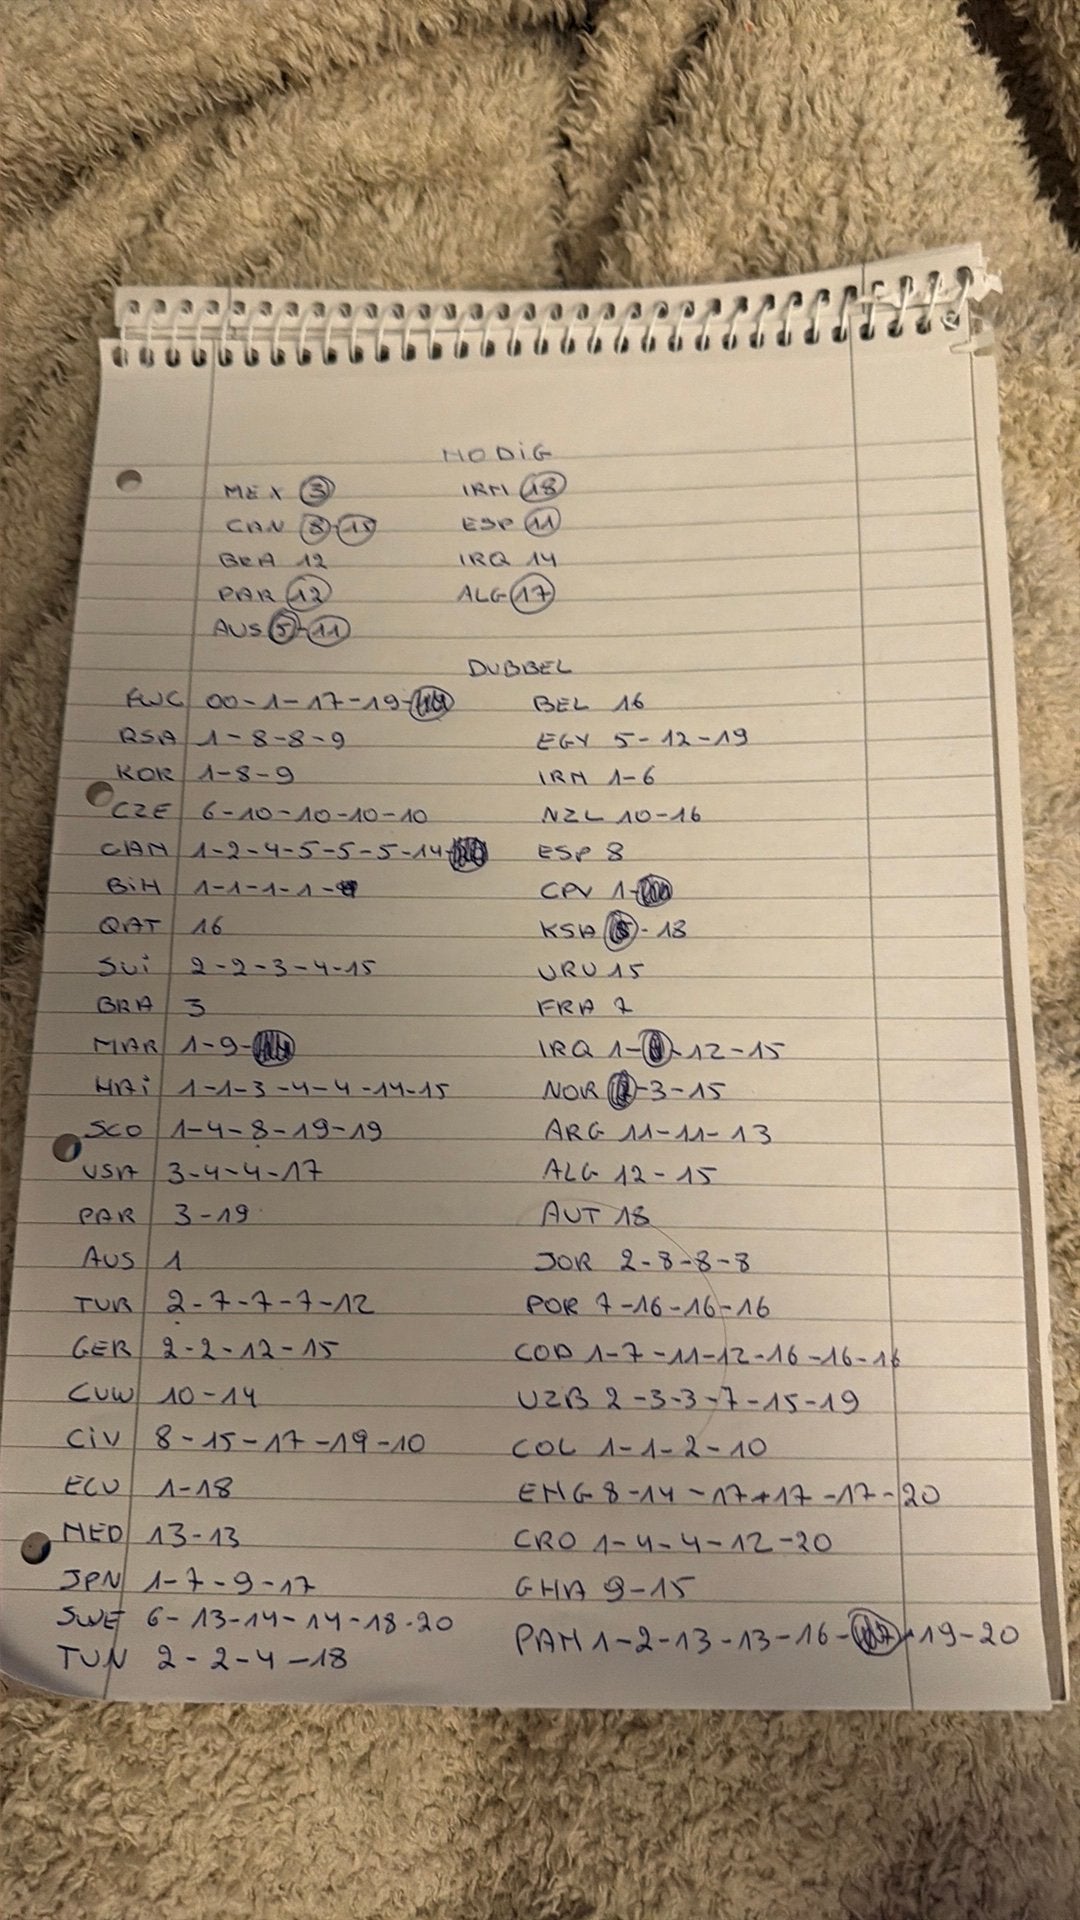 NODiG
MEX 3 IRN 18
CAN 8-15 ESP 11
BRA 12 IRQ 14
PAR 12 ALG 17
AUS 5-11
DUBBEL
FWC 00-1-17-19- BEL 16
RSA 1-8-8-9 EGY 5-12-19
KOR 1-8-9 IRN 1-6
CZE 6-10-10-10-10 NZL 10-16
CAN 1-2-4-5-5-5-14- ESP 8
BiH 1-1-1-1- CPV 1-
QAT 16 KSA -18
SUi 2-2-3-4-15 URU 15
BRA 3 FRA 7
MAR 1-9- IRQ 1- -12-15
HAi 1-1-3-4-4-14-15 NOR -3-15
SCO 1-4-8-19-19 ARG 11-11-13
USA 3-4-4-17 ALG 12-15
PAR 3-19 AUT 18
AUS 1 JOR 2-8-8-8
TUR 2-7-7-7-12 POR 7-16-16-16
GER 2-2-12-15 COD 1-7-11-12-16-16-16
CUW 10-14 UZB 2-3-3-7-15-19
CiV 8-15-17-19-10 COL 1-1-2-10
ECU 1-18 ENG 8-14-17+17-17-20
NED 13-13 CRO 1-4-4-12-20
JPN 1-7-9-17 GHA 9-15
SWE 6-13-14-14-18-20 PAN 1-2-13-13-16- -19-20
TUN 2-2-4-18